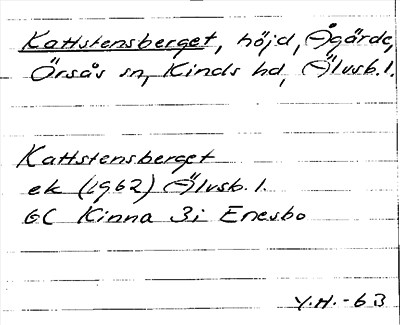 Kattstensberget, höjd, Ågärde,
Örsås sn, Kinds hd, Älvsb. l.
Kattstensberget
ek (1962) Älvsb. l.
6C Kinna 3i Enesbo
Y.H. -63